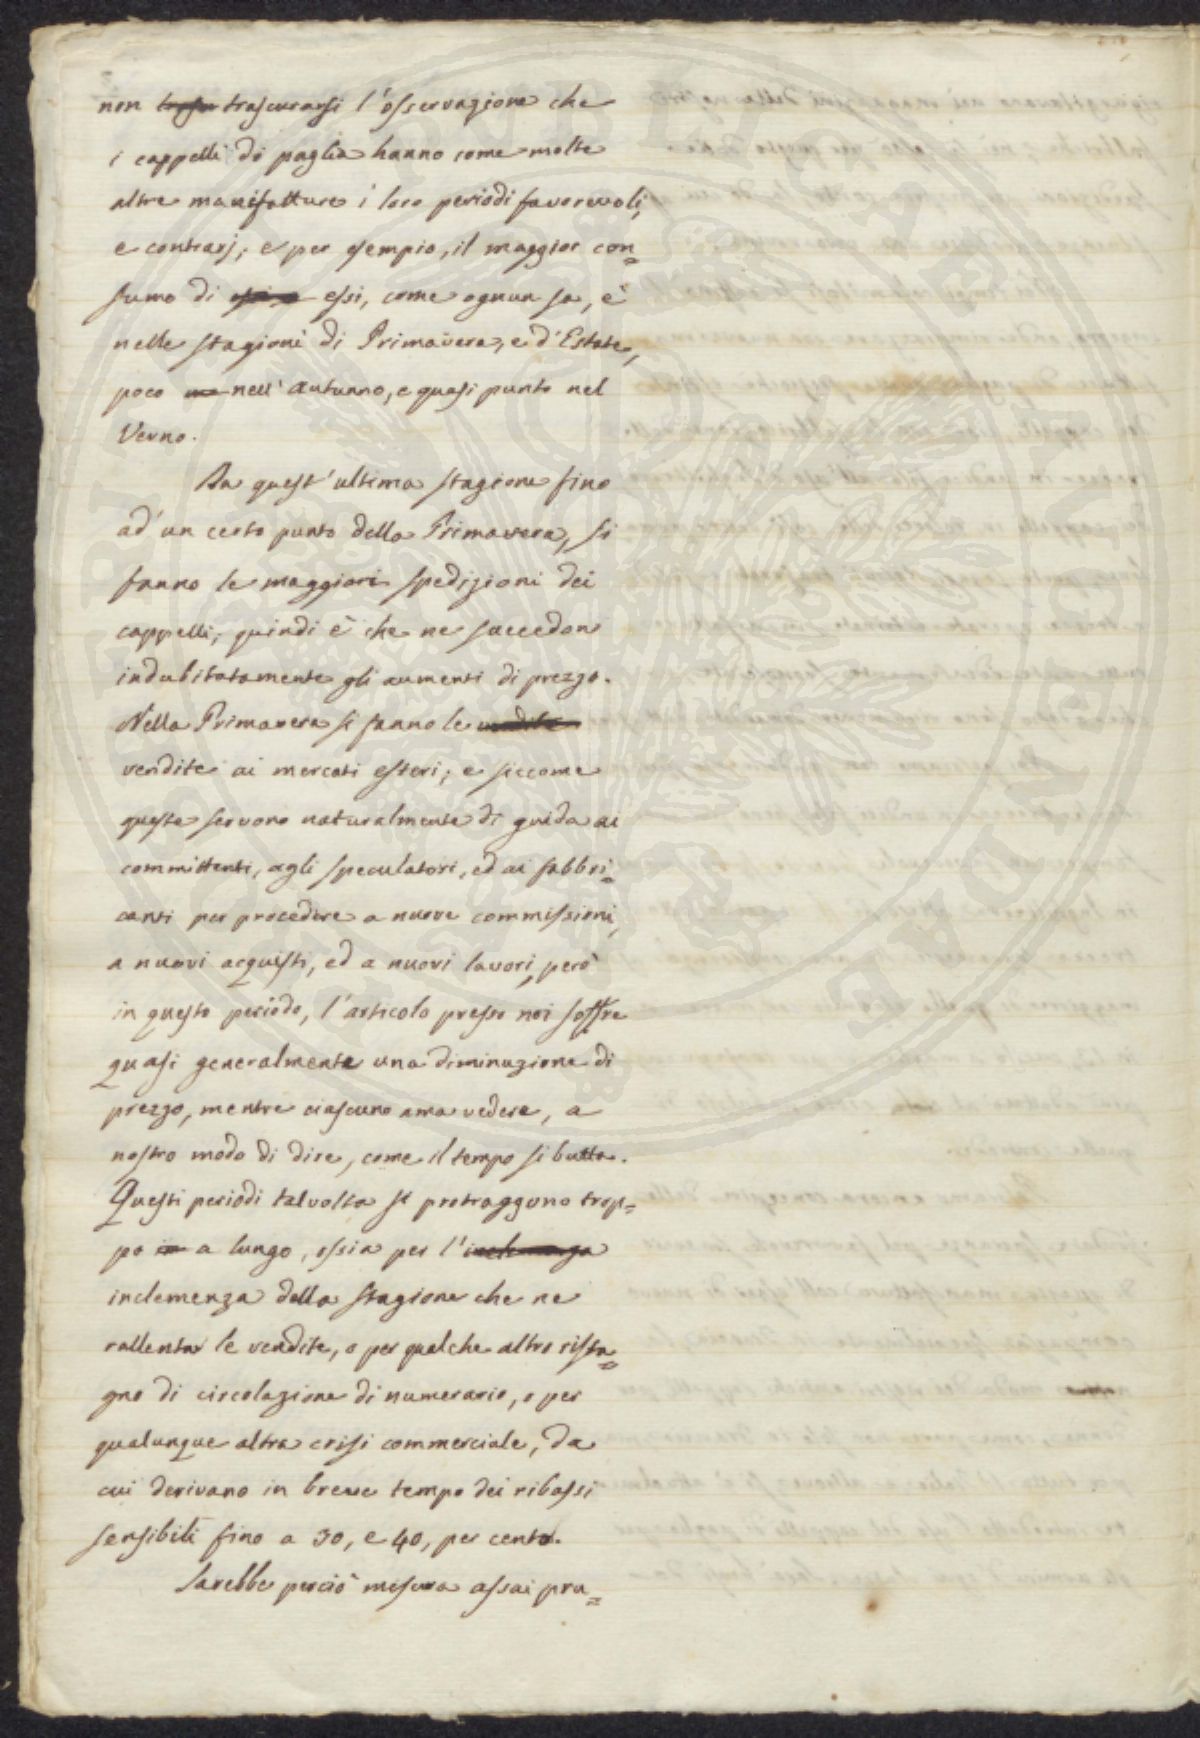 non trascurarsi l'osservazione che
i cappelli di paglia hanno come molte
altre manifatture i loro periodi favorevoli,
e contrarj; e per esempio, il maggior con=
sumo di essi, come ognun sa, è
nelle stagioni di Primavera, e d'Estate,
poco nell'autunno, e quasi punto nel
Verno.
Da quest'ultima stagione fino
ad un certo punto della Primavera, si
fanno le maggiori spedizioni dei
cappelli; quindi è che ne succedon
indubitatamente gli aumenti di prezzo.
Nella Primavera si fanno le
vendite ai mercati esteri; e siccome
queste servono naturalmente di guida ai
committenti, agli speculatori, ed ai fabbri=
canti per procedere a nuove commissioni,
a nuovi acquisti, ed a nuovi lavori, però
in questo periodo, l'articolo presso noi soffre
quasi generalmente una diminuzione di
prezzo, mentre ciascuno ama vedere, a
nostro modo di dire, come il tempo si butta.
Questi periodi talvolta si protraggono trop=
po a lungo, ossia per l'
inclemenza della Stagione che ne
rallenta le vendite, o per qualche altro rista=
gno di circolazione di numerario, o per
qualunque altra crisi commerciale, da
cui derivano in breve tempo dei ribassi
sensibili fino a 30, e 40, per cento.
Sarebbe perciò misura assai pru=